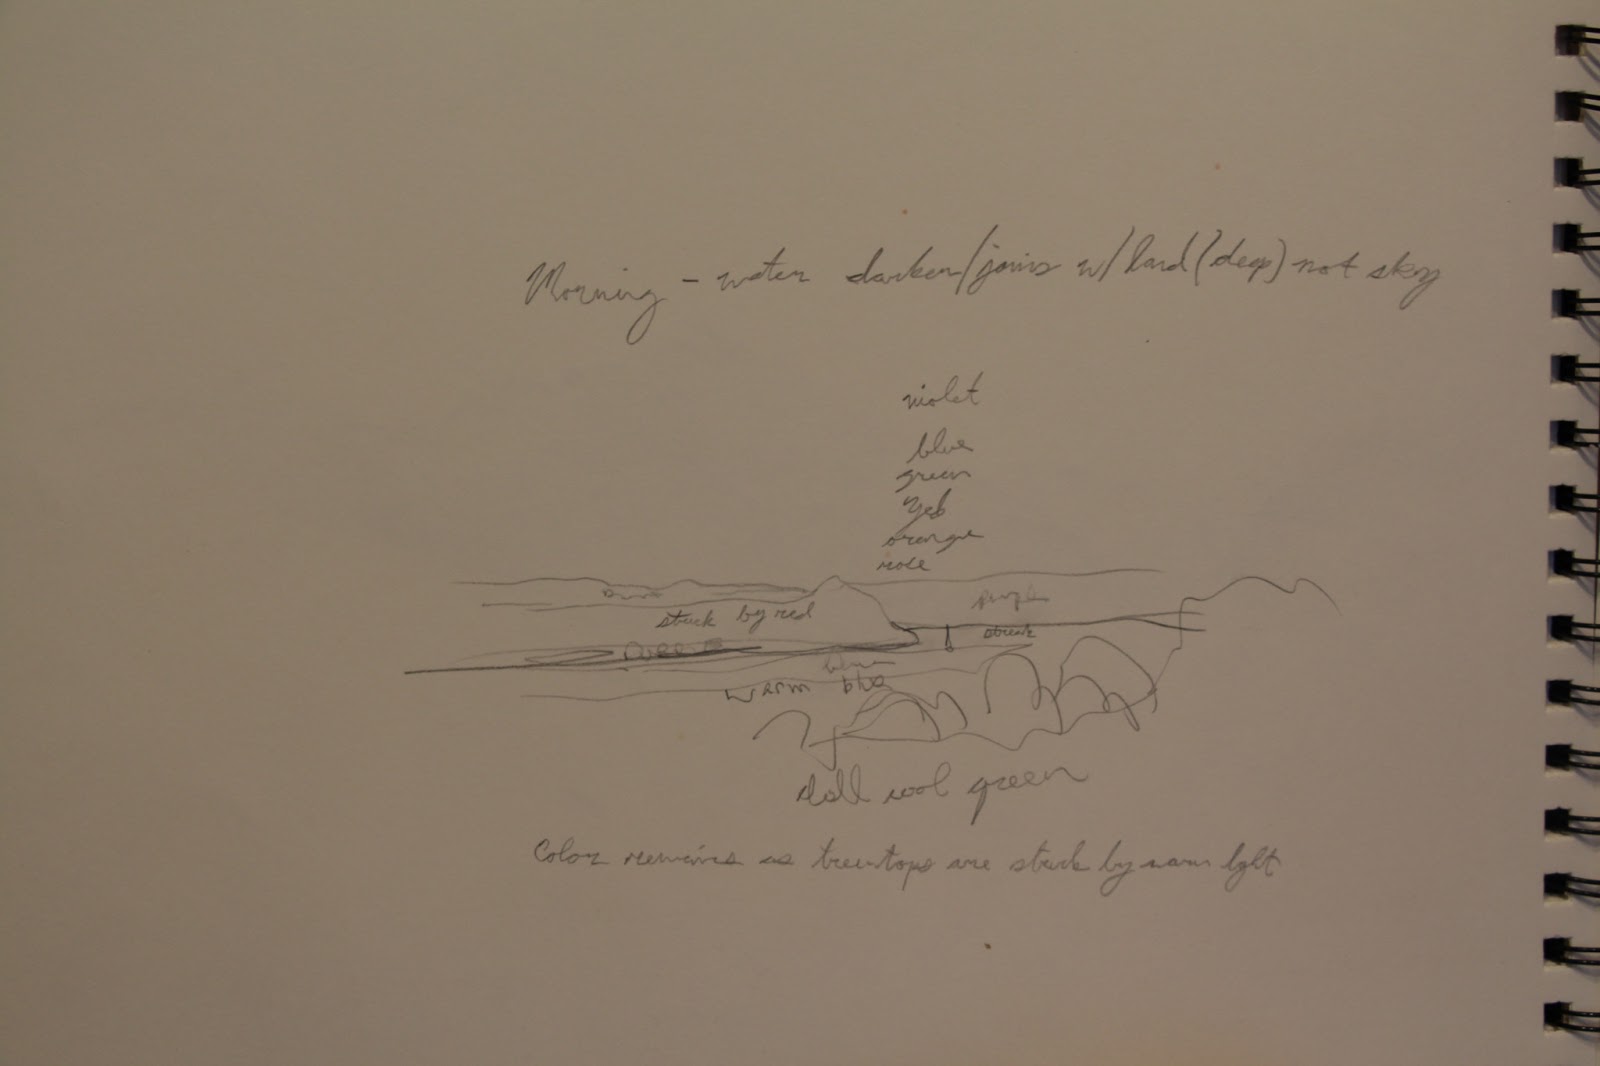 Morning - water darker/joins w/ land (deep) not sky
violet
blue
green
yel
orange
rose
purple
struck by red
streak
blue
warm blue
dull cool green
Color remains as treetops are struck by warm light